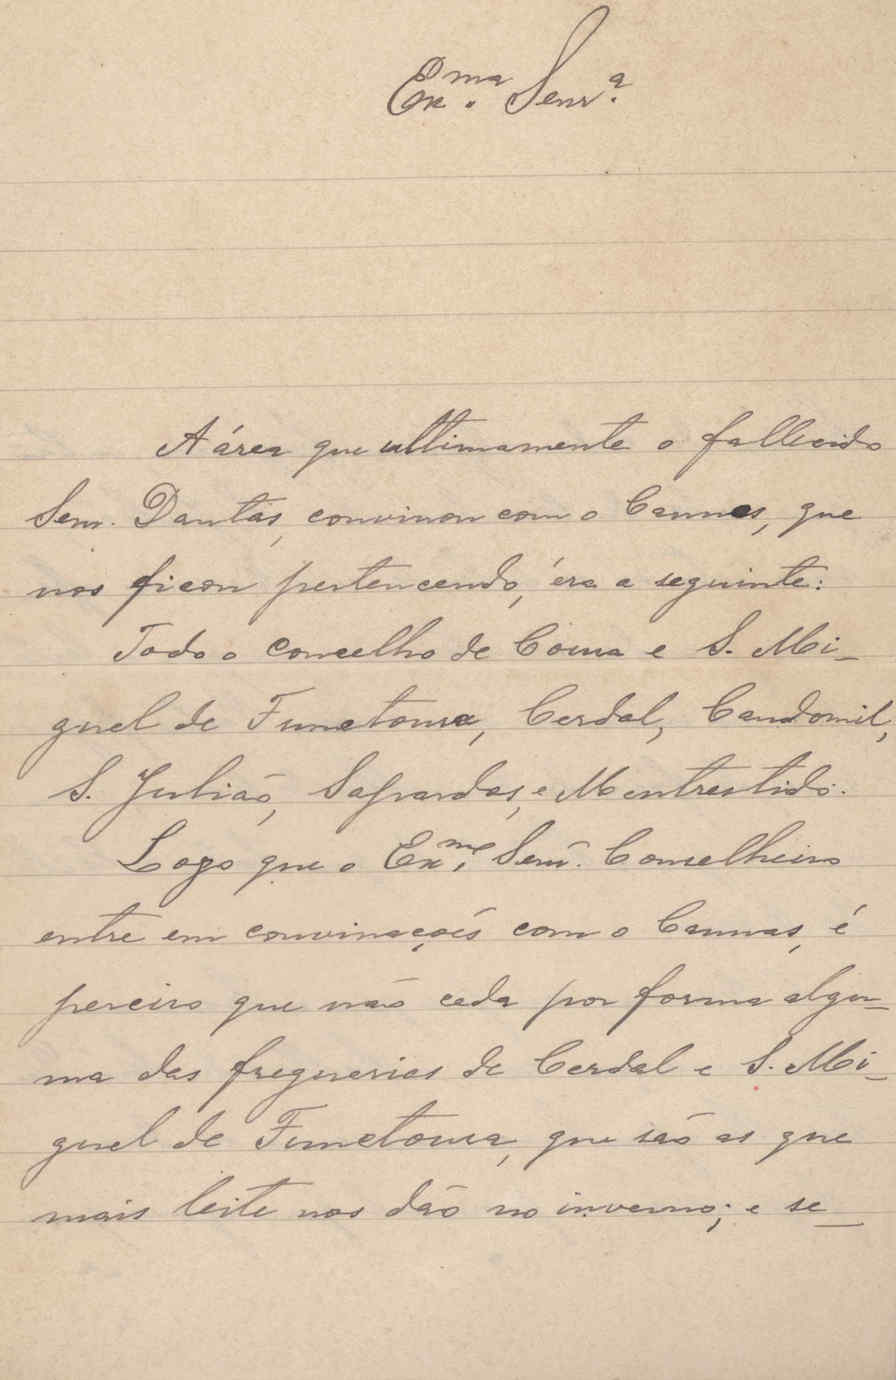 Ex.ma Senr.a
A área que ultimamente o fallecido
Senr. Dantas, convinou com o Cannas, que
nos ficou pertencendo, éra a seguinte:
Todo o concelho de Coura e S. Mi-
guel de Funetoura, Cerdal, Candomil,
S. Julião, Sapardos, e Mentrestido.
Logo que o Ex.mo Senr. Conselheiro
entre em convinações com o Cannas, é
perciso que não ceda por forma algu-
ma das freguerias de Cerdal e S. Mi-
guel de Funetoura, que são as que
mais leite nos dão no inverno; e se_